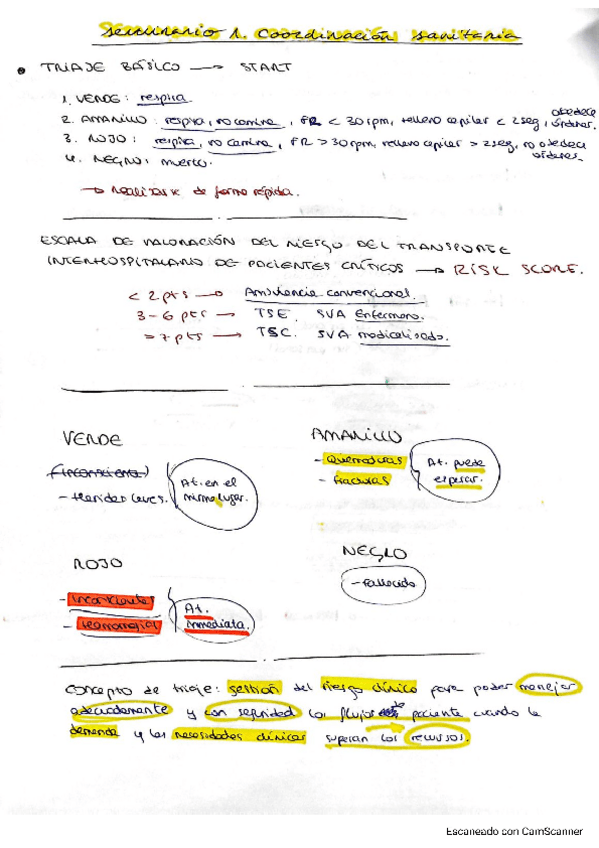 Seminario 1. Coordinación sanitaria
• TRIAJE BÁSICO → START
1. VERDE: respira
2. AMARILLO: respira, no camina, FR < 30 rpm, relleno capilar < 2 seg, obedece órdenes.
3. ROJO: respira, no camina, FR > 30 rpm, relleno capilar > 2 seg, no obedece órdenes.
4. NEGRO: muerto.
→ Realizarse de forma rápida.
ESCALA DE VALORACIÓN DEL RIESGO DEL TRANSPORTE
INTERHOSPITALARIO DE PACIENTES CRÍTICOS → RISK SCORE.
< 2 pts → Ambulancia convencional.
3-6 pts → TSE. SVA Enfermero.
= 7 pts → TSC. SVA medicalizado.
VERDE
(inconsciente)
- Heridas leves.
At. en el
mismo lugar.
AMARILLO
- Quemaduras
- Fracturas
At. puede
esperar.
ROJO
- Inconscientes
- Hemorragias
At.
inmediata.
NEGRO
- Fallecido
Concepto de triaje: gestión del riesgo clínico para poder manejar
adecuadamente y con seguridad los flujos de paciente cuando la
demanda y las necesidades clínicas superan los recursos.
Escaneado con CamScanner